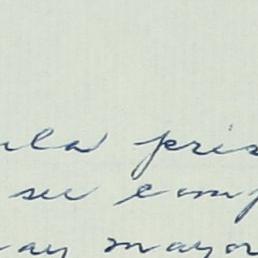 ula pris
se comp
ay mayor